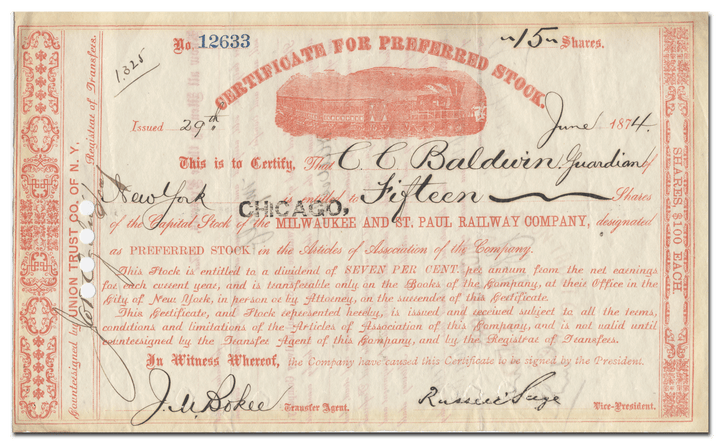 No. 12633
15 Shares.
CERTIFICATE FOR PREFERRED STOCK.
1325
Issued 29th June 1874.
This is to Certify, That C. C. Baldwin, Guardian of
New York is entitled to Fifteen Shares
CHICAGO,
of the Capital Stock of the MILWAUKEE AND ST. PAUL RAILWAY COMPANY, designated
as PREFERRED STOCK in the Articles of Association of the Company.
This Stock is entitled to a dividend of SEVEN PER CENT. per annum from the net earnings
for each current year, and is transferable only on the Books of the Company, at their Office in the
City of New York, in person or by Attorney, on the surrender of this Certificate.
This Certificate, and Stock represented hereby, is issued and received subject to all the terms,
conditions and limitations of the Articles of Association of this Company, and is not valid until
countersigned by the Transfer Agent of this Company, and by the Registrar of Transfers.
In Witness Whereof, the Company have caused this Certificate to be signed by the President.
J. M. Bokee Transfer Agent.
Russell Sage Vice-President.
Countersigned by UNION TRUST CO. OF N. Y.
Registrar of Transfers.
SHARES, $100 EACH.